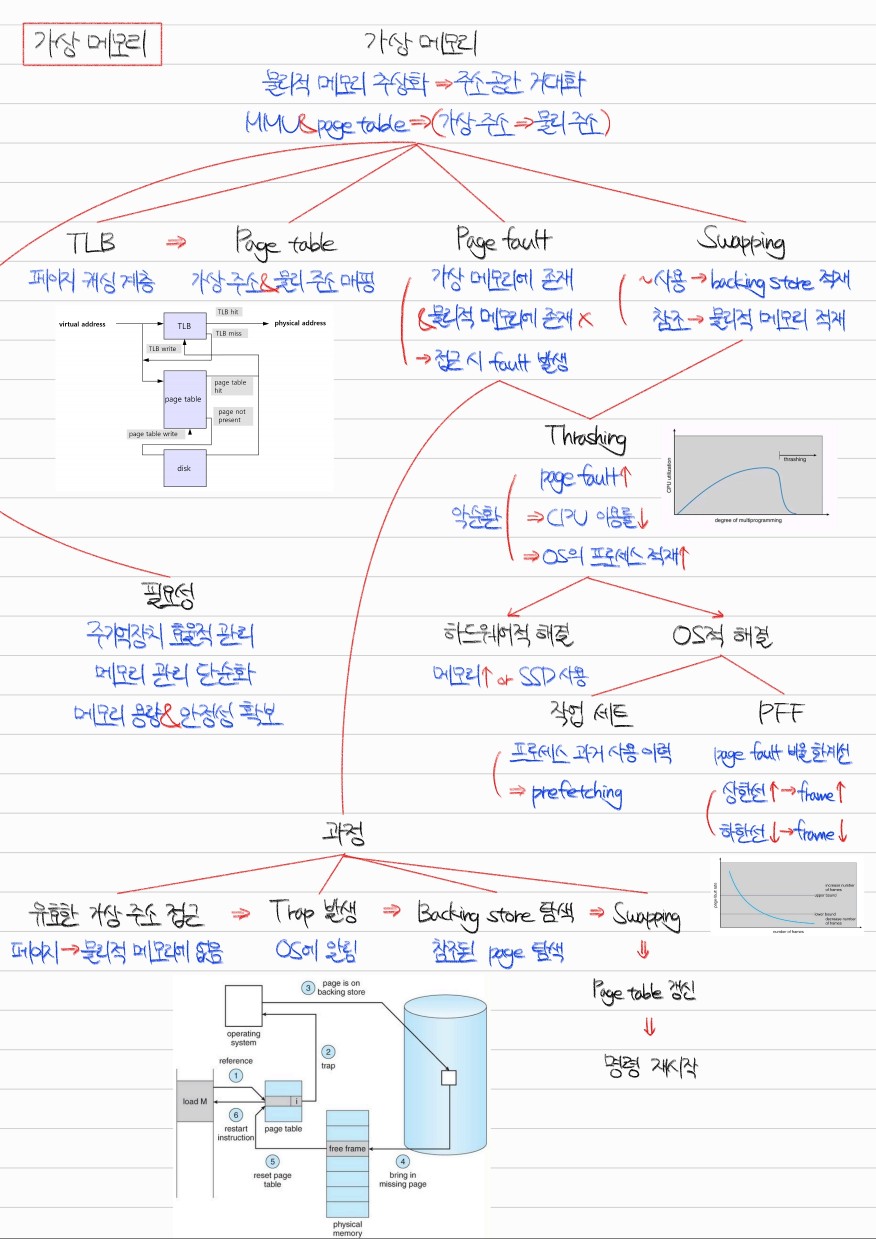 가상 메모리
가상 메모리
물리적 메모리 추상화 ⇒ 주소공간 거대화
MMU & page table ⇒ (가상 주소 ⇒ 물리 주소)
TLB ⇒ Page table
페이지 캐싱 계층
가상 주소 & 물리 주소 매핑
virtual address
TLB
TLB hit
physical address
TLB miss
TLB write
page table
page table
hit
page not
present
page table write
disk
Page fault
가상 메모리에 존재
& 물리적 메모리에 존재 X
→ 접근 시 fault 발생
Swapping
~사용 → backing store 적재
참조 → 물리적 메모리 적재
Thrashing
page fault↑
악순환
⇒ CPU 이용률↓
⇒ OS의 프로세스 적재↑
CPU utilization
thrashing
degree of multiprogramming
필요성
주기억장치 효율적 관리
메모리 관리 단순화
메모리 용량 & 안정성 확보
하드웨어적 해결
메모리↑ or SSD 사용
OS적 해결
작업 세트
프로세스 과거 사용 이력
⇒ prefetching
PFF
page fault 비율 한계선
상한선↑ → frame↑
하한선↓ → frame↓
page-fault rate
increase number
of frames
upper bound
lower bound
decrease number
of frames
number of frames
과정
유효한 가상 주소 접근 ⇒ Trap 발생 ⇒ Backing store 탐색 ⇒ Swapping
페이지 → 물리적 메모리에 없음
OS에 알림
참조된 page 탐색
⇓
Page table 갱신
⇓
명령 재시작
3
page is on
backing store
operating
system
2
trap
reference
1
load M
i
6
restart
instruction
page table
free frame
5
reset page
table
4
bring in
missing page
physical
memory